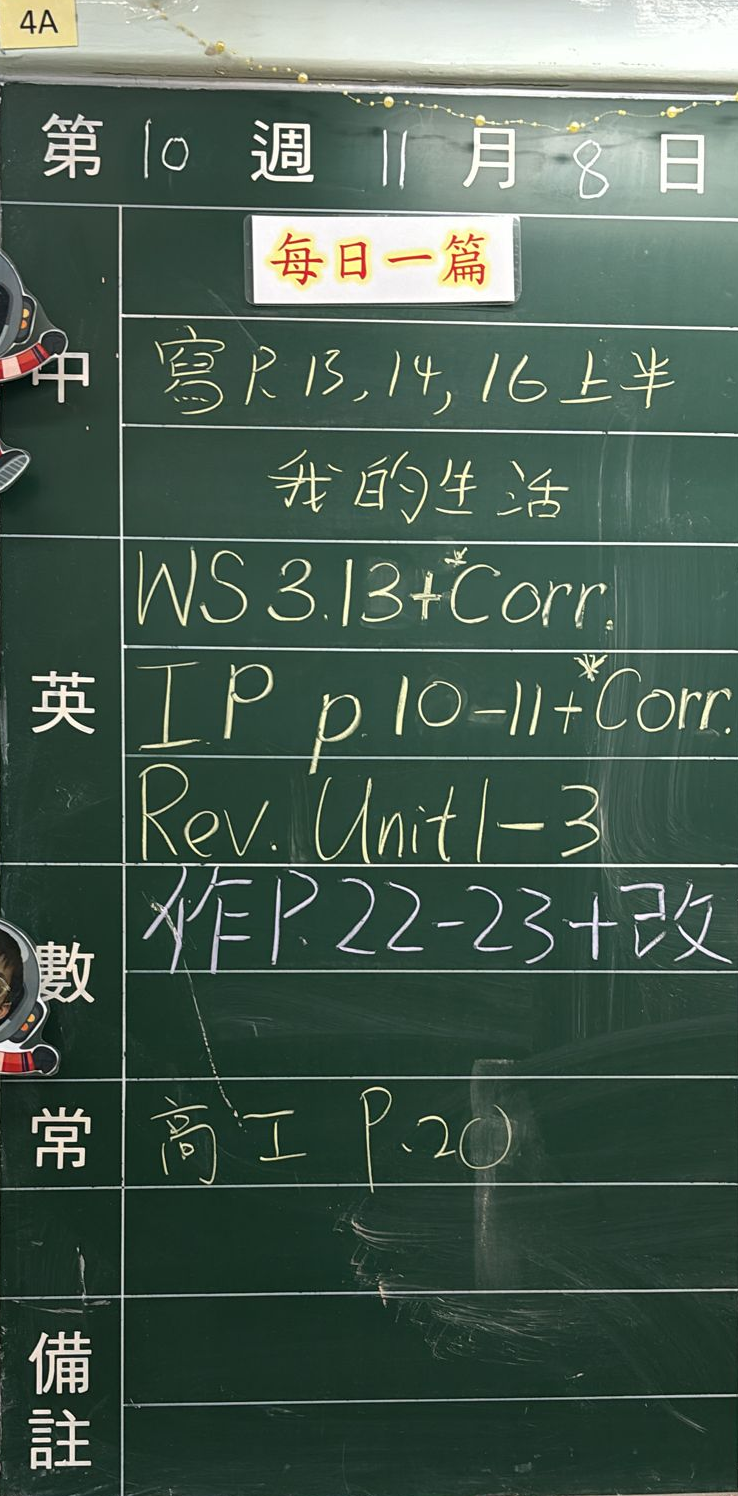 4A
第 10 週 11 月 8 日
每日一篇
中
寫 P. 13, 14, 16 上半
我的生活
英
WS 3.13+*Corr.
IP p.10-11+*Corr.
Rev. Unit 1-3
數
作 P.22-23+改
常
高工 P.20
備註